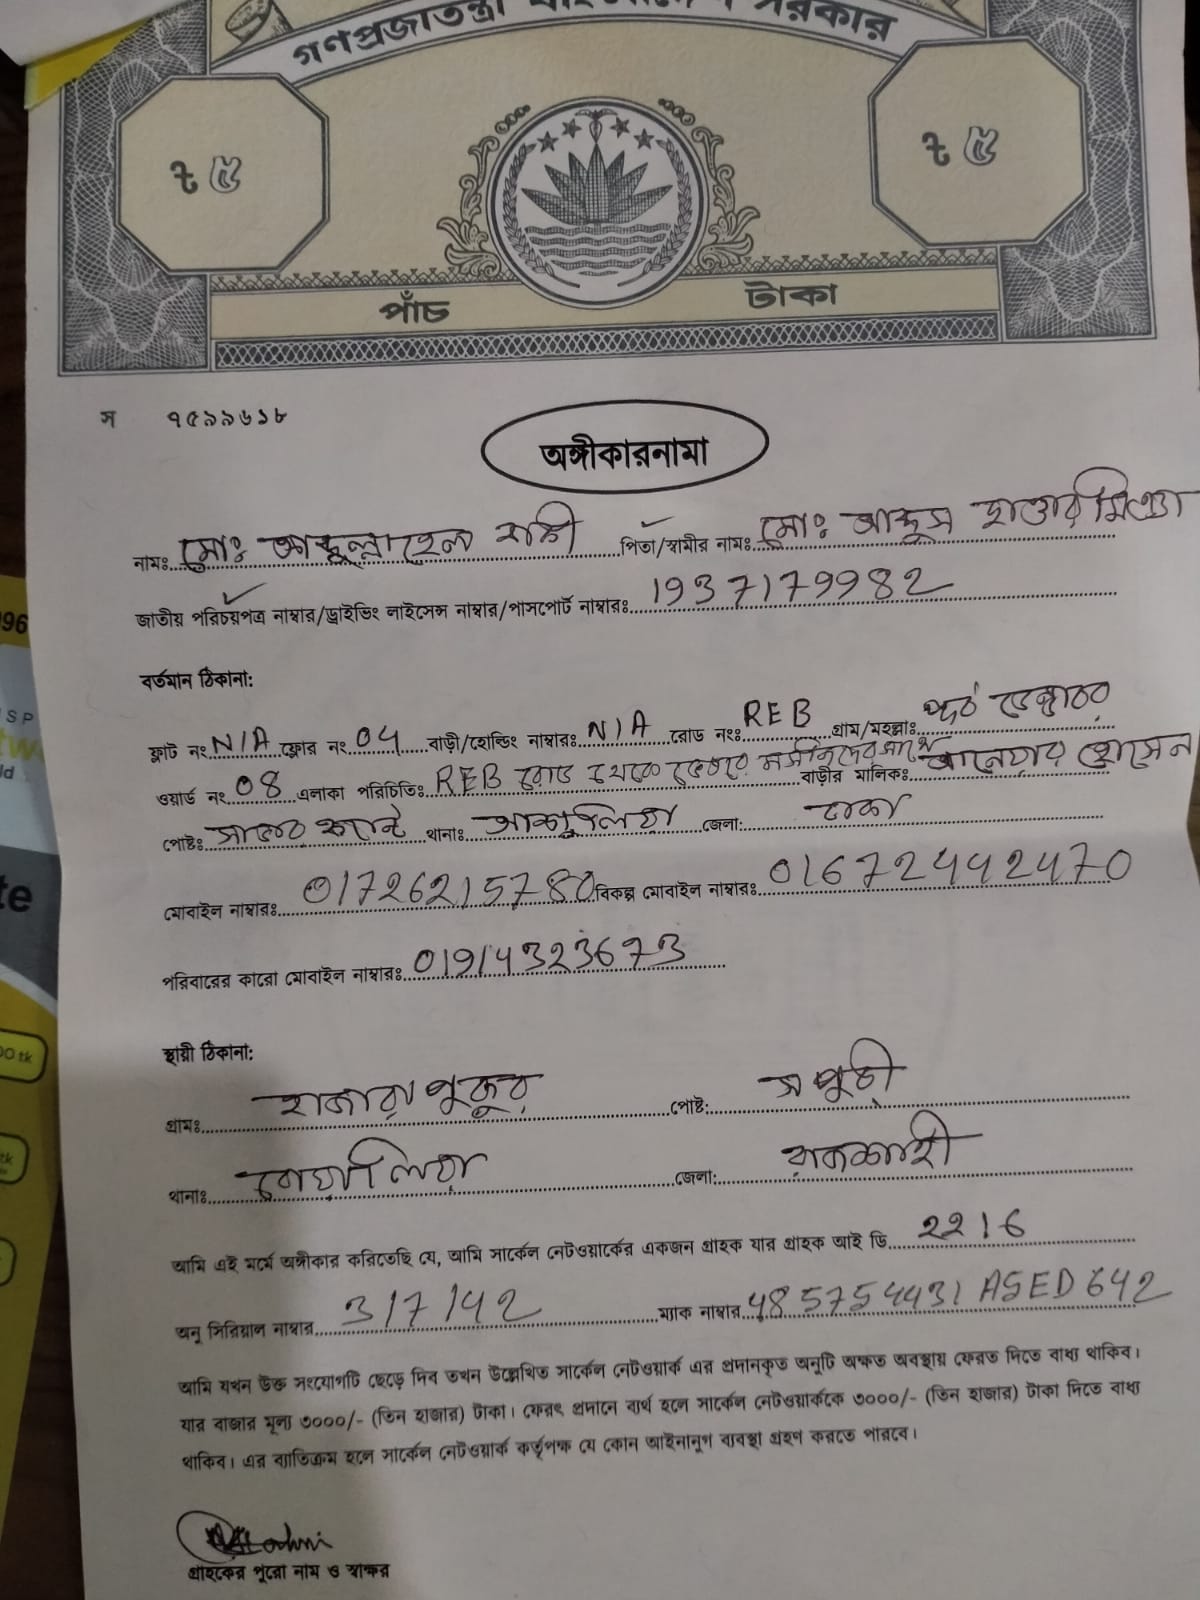 গণপ্রজাতন্ত্রী বাংলাদেশ সরকার
৳ ৫
৳ ৫
পাঁচ টাকা
স ৭৫৯৯৬১৮
অঙ্গীকারনামা
নামঃ মোঃ পিতা/স্বামীর নামঃ মোঃ মিঞা
জাতীয় পরিচয়পত্র নাম্বার/ড্রাইভিং লাইসেন্স নাম্বার/পাসপোর্ট নাম্বারঃ 1937179982
বর্তমান ঠিকানা:
ফ্লাট নং N/A ফ্লোর নং 04 বাড়ী/হোল্ডিং নাম্বারঃ N/A রোড নংঃ REB গ্রাম/মহল্লাঃ
ওয়ার্ড নং 08 এলাকা পরিচিতিঃ REB রোড মসজিদের সাথে বাড়ীর মালিকঃ আনোয়ার হোসেন
পোষ্টঃ থানাঃ জেলা: ঢাকা
মোবাইল নাম্বারঃ 01726215780 বিকল্প মোবাইল নাম্বারঃ 01672442470
পরিবারের কারো মোবাইল নাম্বারঃ 01914323673
স্থায়ী ঠিকানা:
গ্রামঃ হাজরা পুকুর পোষ্ট: সপুরা
থানাঃ বোয়ালিয়া জেলা: রাজশাহী
আমি এই মর্মে অঙ্গীকার করিতেছি যে, আমি সার্কেল নেটওয়ার্কের একজন গ্রাহক যার গ্রাহক আই ডি 2216
অনু সিরিয়াল নাম্বার 317142 ম্যাক নাম্বার 48575443
আমি যখন উক্ত সংযোগটি ছেড়ে দিব তখন উল্লেখিত সার্কেল নেটওয়ার্ক এর প্রদানকৃত অনুটি অক্ষত অবস্থায় ফেরত দিতে বাধ্য থাকিব।
যার বাজার মূল্য ৩০০০/- (তিন হাজার) টাকা। ফেরৎ প্রদানে ব্যর্থ হলে সার্কেল নেটওয়ার্ককে ৩০০০/- (তিন হাজার) টাকা দিতে বাধ্য
থাকিব। এর ব্যাতিক্রম হলে সার্কেল নেটওয়ার্ক কর্তৃপক্ষ যে কোন আইনানুগ ব্যবস্থা গ্রহণ করতে পারবে।
গ্রাহকের পুরো নাম ও স্বাক্ষর